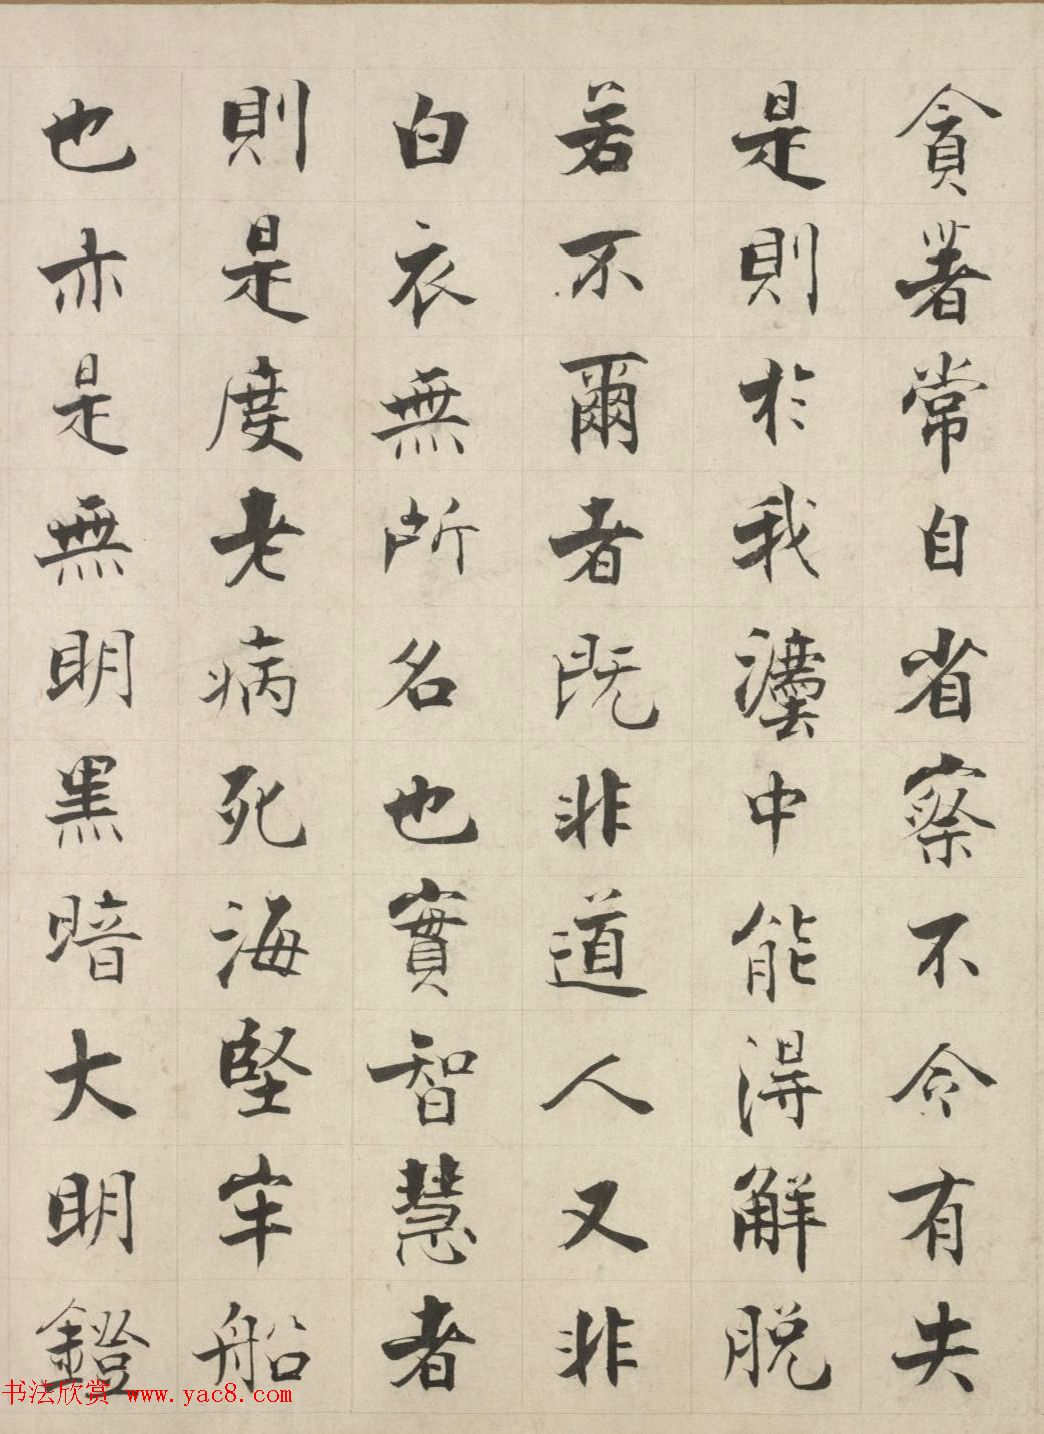 貪著常自省察不令有失
是則於我灋中能得解脫
若不爾者既非道人又非
白衣無所名也實智慧者
則是度老病死海堅牢船
也亦是無明黑暗大明鐙
书法欣赏 www.yac8.com